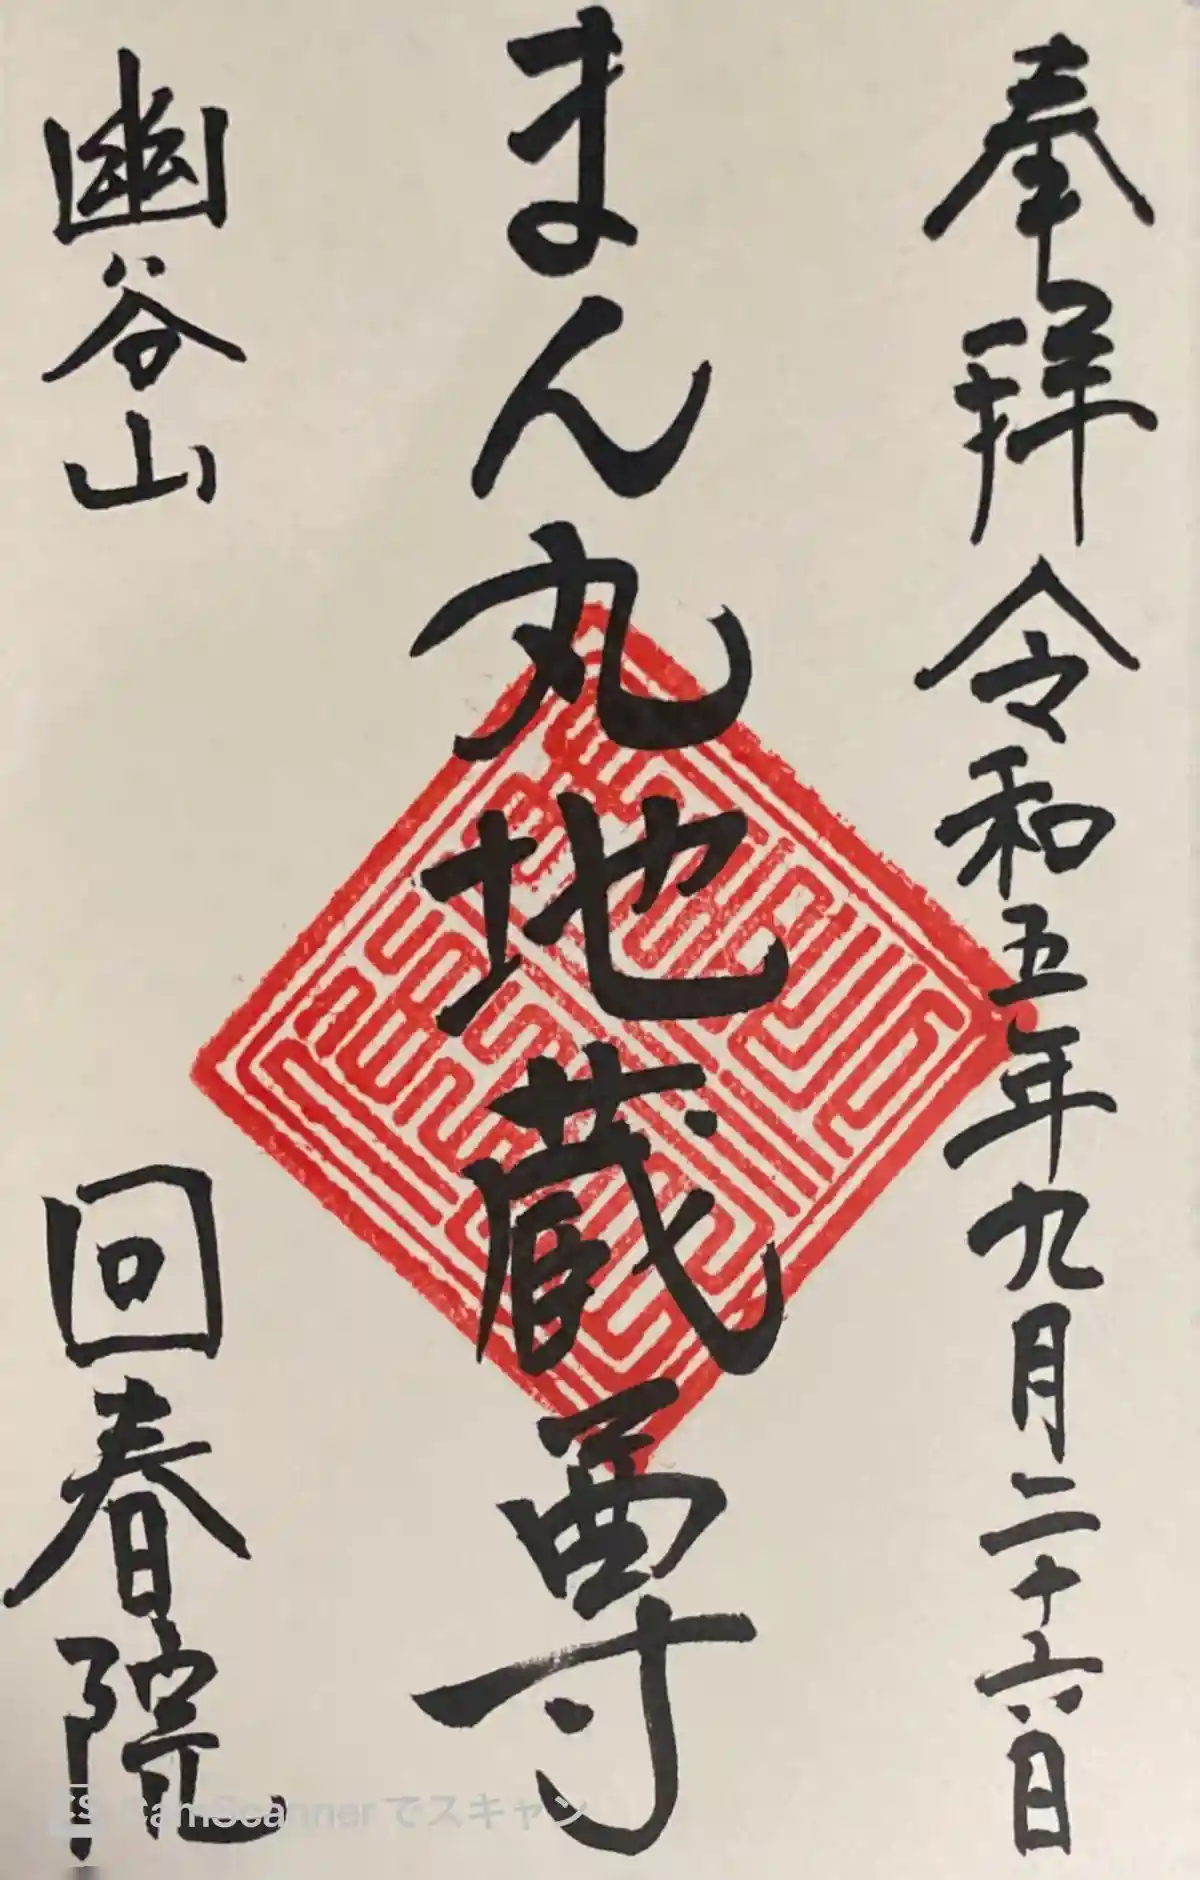 奉拝 令和五年九月二十六日
まん丸地蔵尊
幽谷山 回春院
CamScanner でスキャン